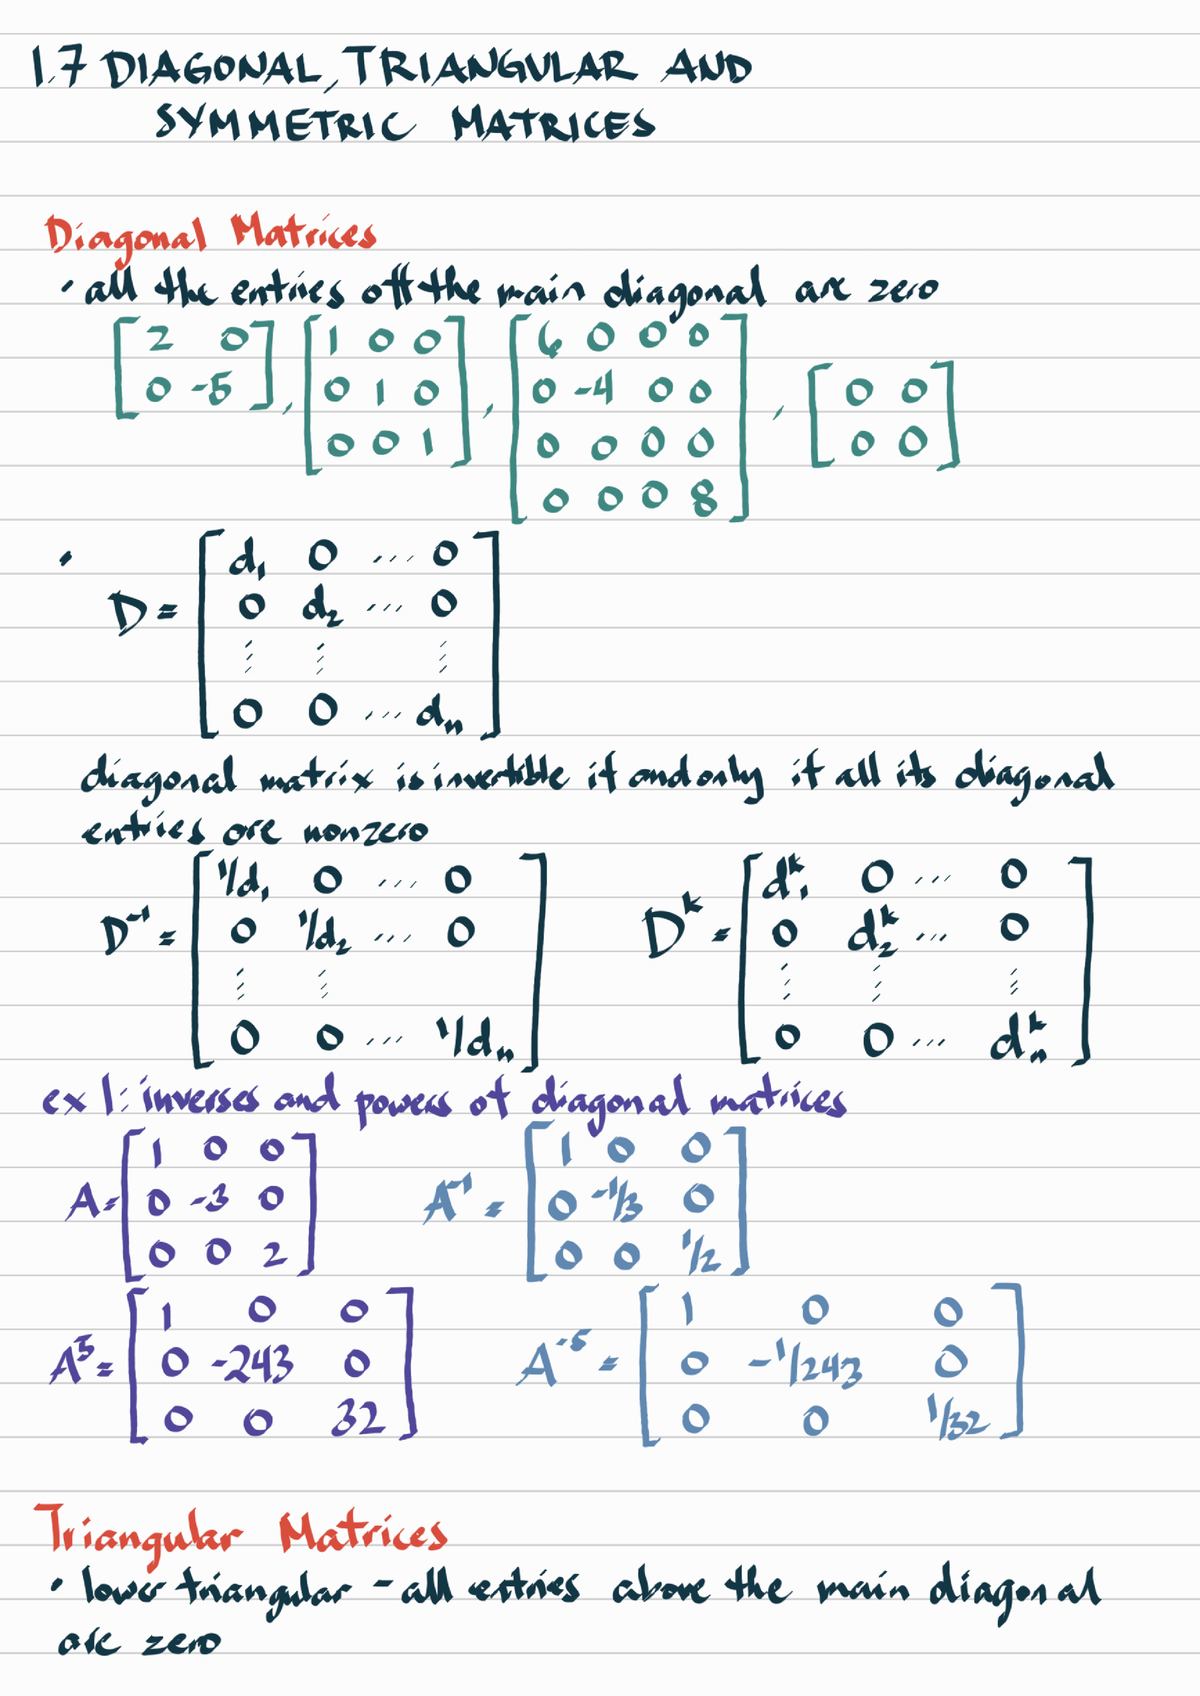 1.7 DIAGONAL, TRIANGULAR AND
SYMMETRIC MATRICES
Diagonal Matrices
• all the entries off the main diagonal are zero
[2 0; 0 -5], [1 0 0; 0 1 0; 0 0 1], [6 0 0 0; 0 -4 0 0; 0 0 0 0; 0 0 0 8], [0 0; 0 0]
• D = [d₁ 0 ... 0; 0 d₂ ... 0; ⋮ ⋮ ⋮; 0 0 ... dₙ]
diagonal matrix is invertible if and only if all its diagonal
entries are nonzero
D⁻¹ = [1/d₁ 0 ... 0; 0 1/d₂ ... 0; ⋮ ⋮; 0 0 ... 1/dₙ] Dᵏ = [d₁ᵏ 0 ... 0; 0 d₂ᵏ ... 0; ⋮ ⋮ ⋮; 0 0 ... dₙᵏ]
ex 1: inverses and powers of diagonal matrices
A = [1 0 0; 0 -3 0; 0 0 2] A⁻¹ = [1 0 0; 0 -1/3 0; 0 0 1/2]
A⁵ = [1 0 0; 0 -243 0; 0 0 32] A⁻⁵ = [1 0 0; 0 -1/243 0; 0 0 1/32]
Triangular Matrices
• lower triangular - all entries above the main diagonal
are zero